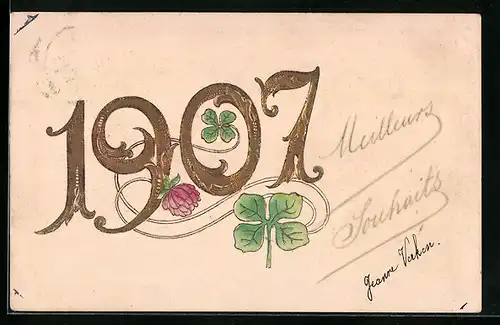 1907
Meilleurs
Souhaits
Jeanne